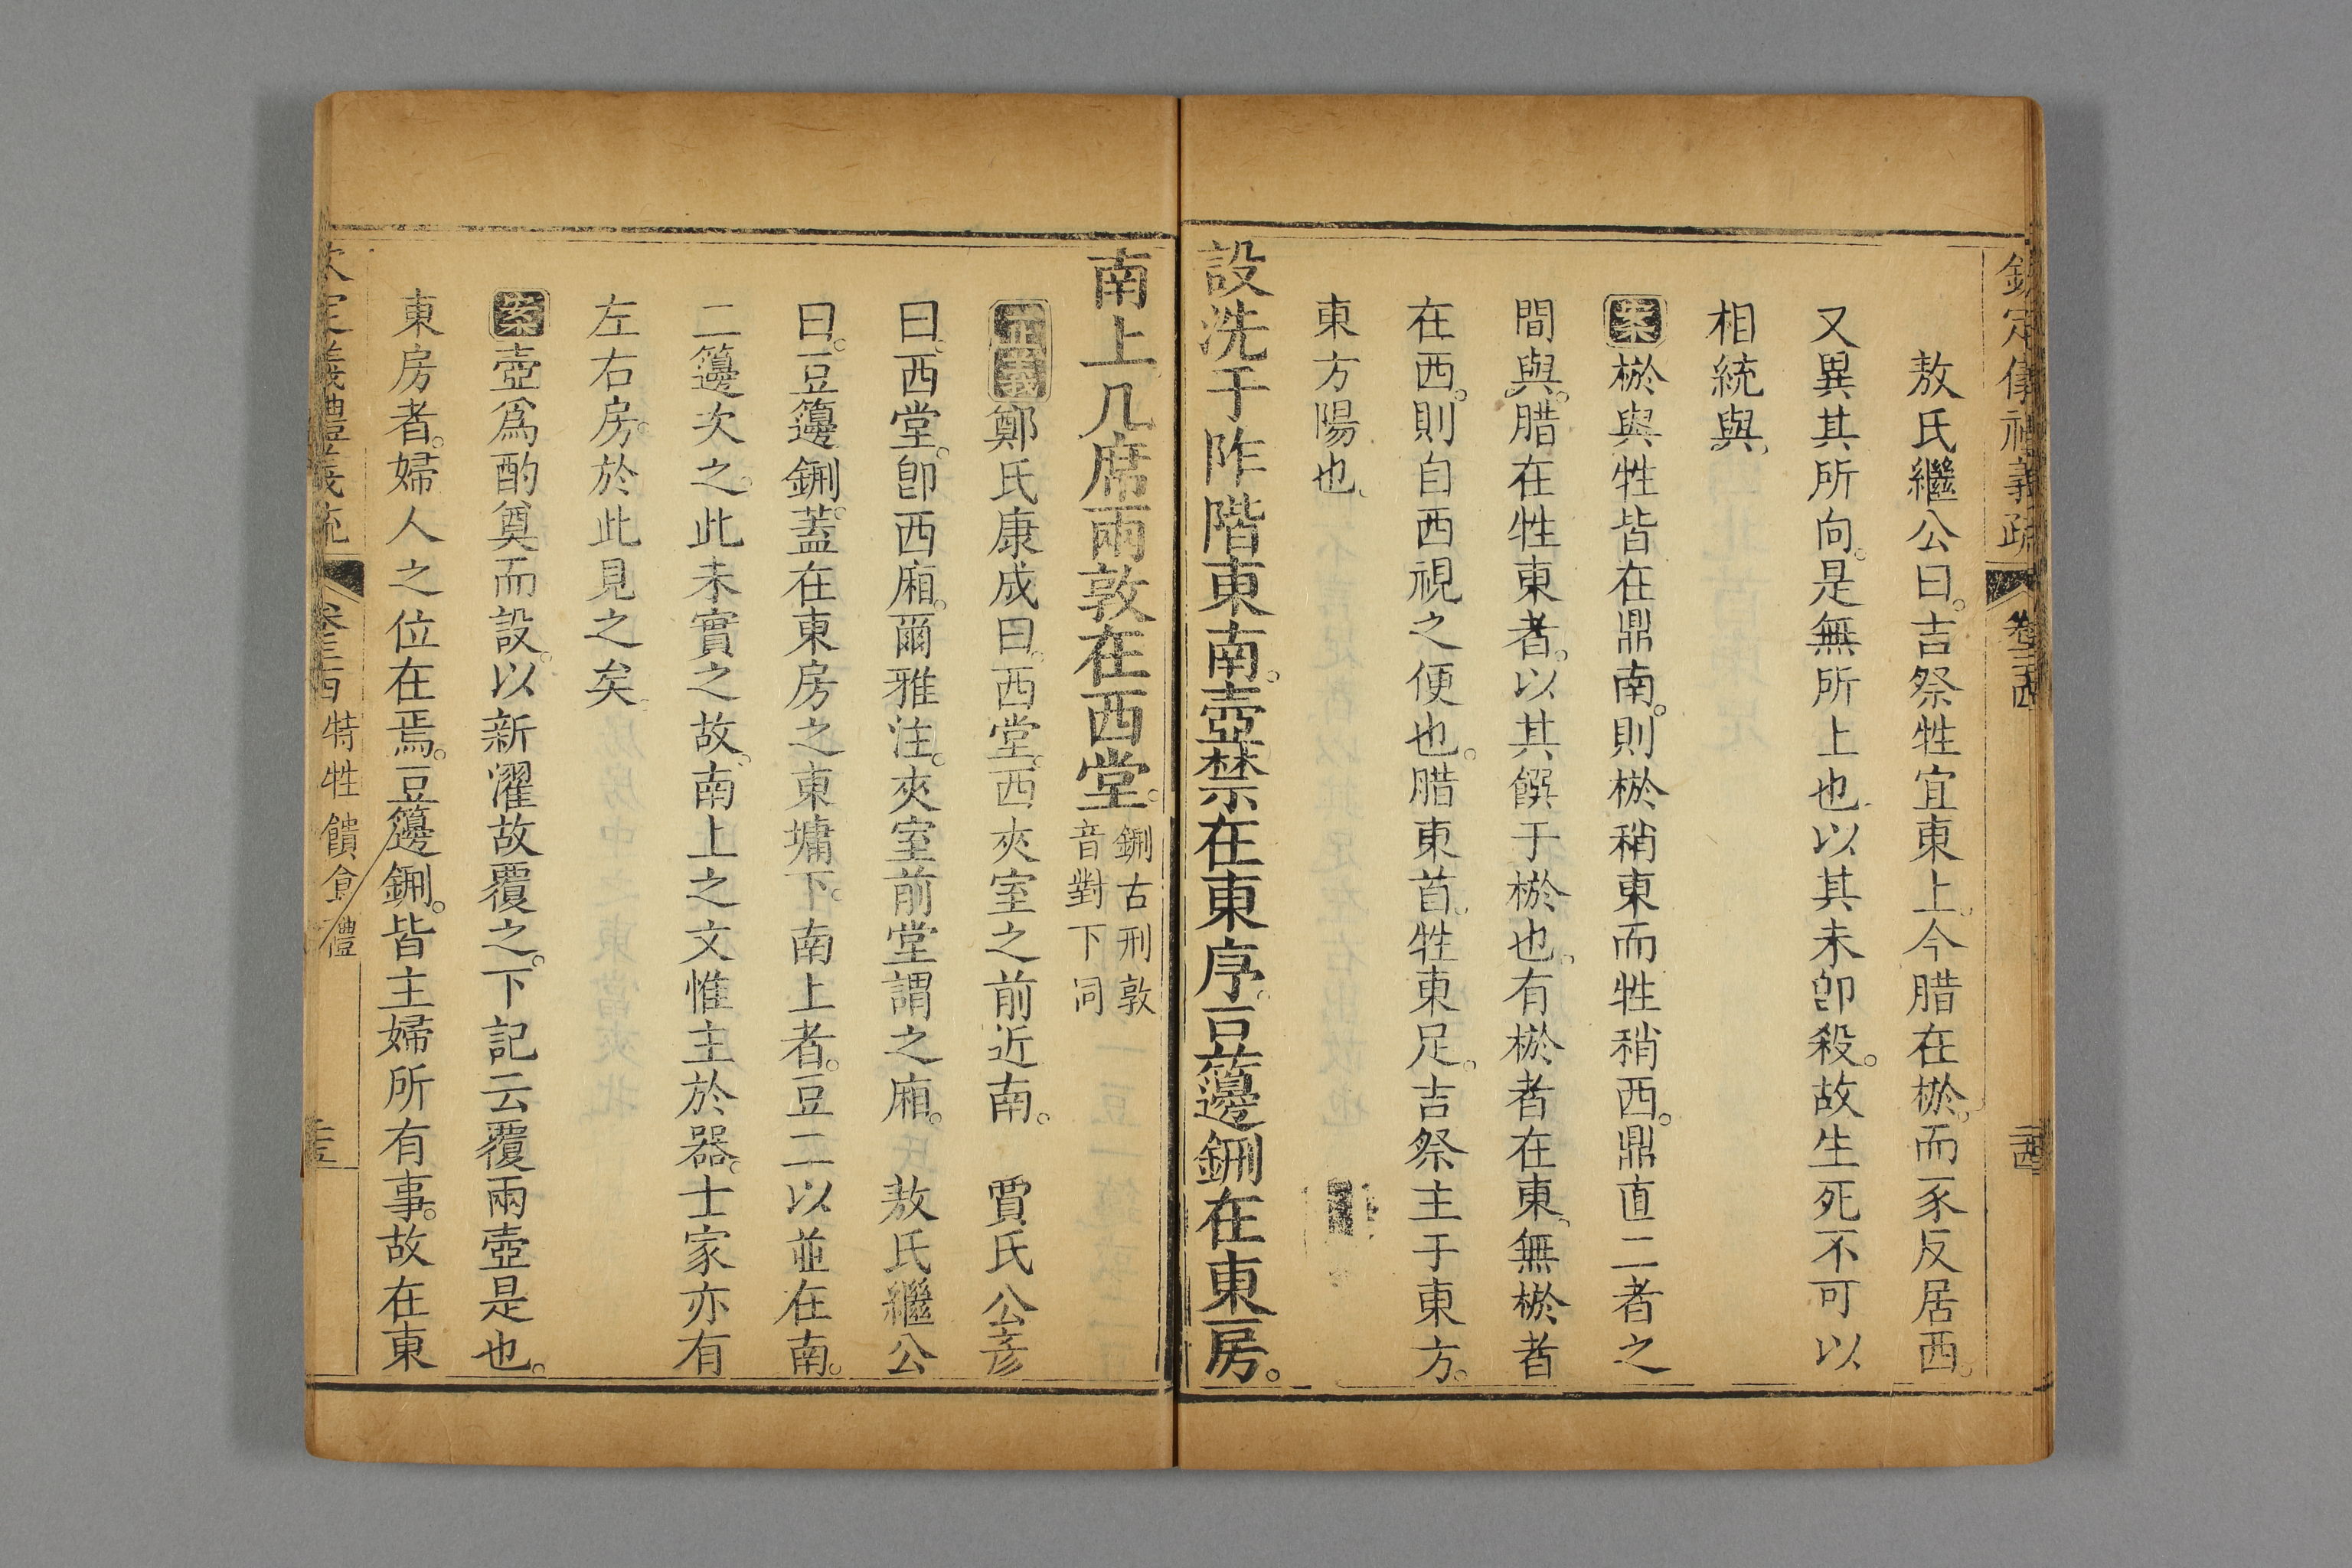 欽定儀禮義疏 卷三十四 二十四
敖氏繼公曰。吉祭牲宜東上。今腊在棜。而豕反居西。
又異其所向。是無所上也。以其未卽殺。故生死不可以
相統與。
案棜與牲皆在鼎南。則棜稍東而牲稍西。鼎直二者之
間與。腊在牲東者。以其饌于棜也。有棜者在東。無棜者
在西。則自西視之便也。腊東首。牲東足。吉祭主于東方。
東方陽也。
設洗于阼階東南。壺禁在東序。豆籩鉶在東房。
南上几席兩敦在西堂。
鉶古刑敦
音對下同
正義鄭氏康成曰。西堂。西夾室之前近南。 賈氏公彥
曰。西堂。卽西廂。爾雅注。夾室前堂謂之廂。 敖氏繼公
曰。豆籩鉶。蓋在東房之東墉下。南上者。豆二以並在南。
二籩次之。此未實之故。南上之文惟主於器。士家亦有
左右房。於此見之矣。
案壺爲酌奠而設。以新濯故覆之。下記云覆兩壺是也。
東房者。婦人之位在焉。豆籩鉶。皆主婦所有事。故在東
欽定儀禮義疏 卷三十四 特牲饋食禮